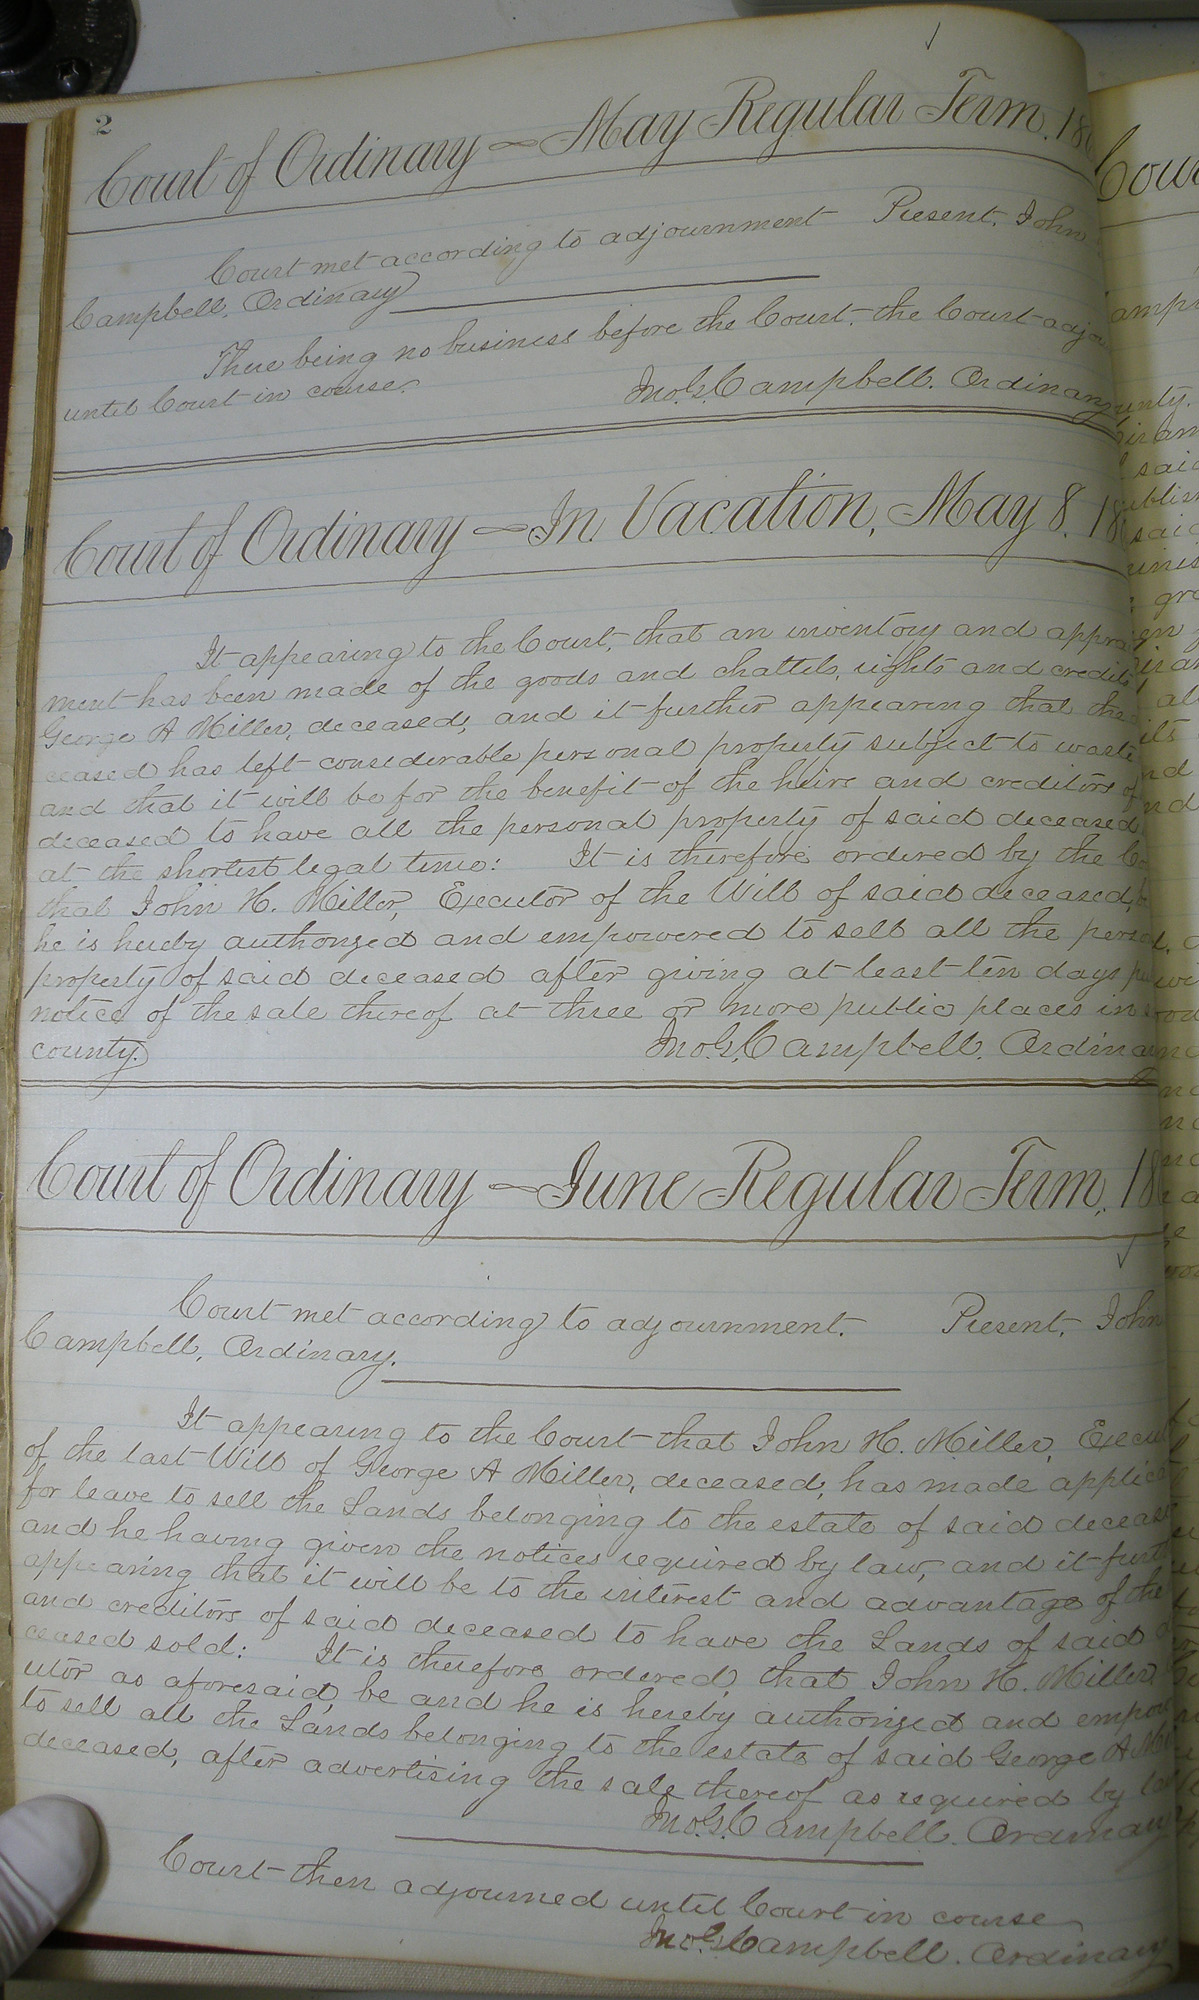 2
Court of Ordinary — May Regular Term. 18
Court met according to adjournment Present. John
Campbell, Ordinary
There being no business before the Court, the Court adjo
until Court in course.
Jno. G. Campbell. Ordinary
Court of Ordinary — In Vacation, May 8. 18
It appearing to the Court, that an inventory and appra
ment has been made of the goods and chattels, rights and credits
George A Miller, deceased, and it further appearing that the
ceased has left considerable personal property subject to waste
and that it will be for the benefit of the heirs and creditors of
deceased to have all the personal property of said deceased
at the shortest legal time: It is therefore ordered by the Co
that John H. Miller, Executor of the Will of said deceased, b
he is hereby authorized and empowered to sell all the person
property of said deceased after giving at least ten days pu
notice of the sale thereof at three or more public places in s
county.
Jno. G. Campbell. Ordinar
Court of Ordinary — June Regular Term, 18
Court met according to adjournment. Present, John
Campbell, Ordinary.
It appearing to the Court that John H. Miller, Execu
of the last Will of George A Miller, deceased, has made applica
for leave to sell the Lands belonging to the estate of said deceas
and he having given the notices required by law, and it furth
appearing that it will be to the interest and advantage of the
and creditors of said deceased to have the Lands of said d
ceased sold: It is therefore ordered, that John H. Miller,
utor as aforesaid, be and he is hereby authorized and empow
to sell all the Lands belonging to the estate of said George A Mi
deceased, after advertising the sale thereof as required by la
Jno. G. Campbell. Ordinary
Court then adjourned until Court in course
Jno. G. Campbell. Ordinary